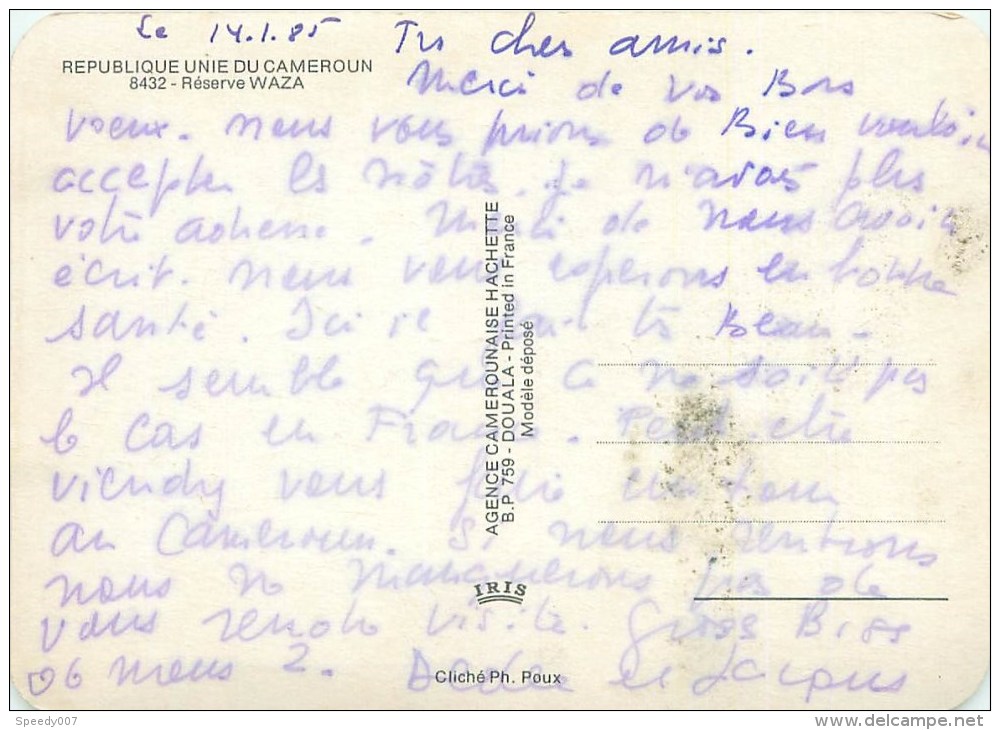 Le 14.1.85 Très chers amis.
REPUBLIQUE UNIE DU CAMEROUN
8432 - Réserve WAZA
Merci de vos Bons
voeux. nous vous prions de Bien vouloir
accepter les nôtres. Je n'avais plus
votre adresse. Merci de nous avoir
écrit. nous vous espérons en bonne
santé. Ici il fait très Beau.
Il semble que ce ne soit pas
le cas en France. Peut-être
viendrez vous faire un tour
au Cameroun. Si nous rentrons
nous ne manquerons pas de
vous rendre visite. Gross Biss
de nous 2. Dédée et Jacques
AGENCE CAMEROUNAISE HACHETTE
B.P 759 - DOUALA - Printed in France
Modèle déposé
IRIS
Cliché Ph. Poux
Speedy007
delcampe.net